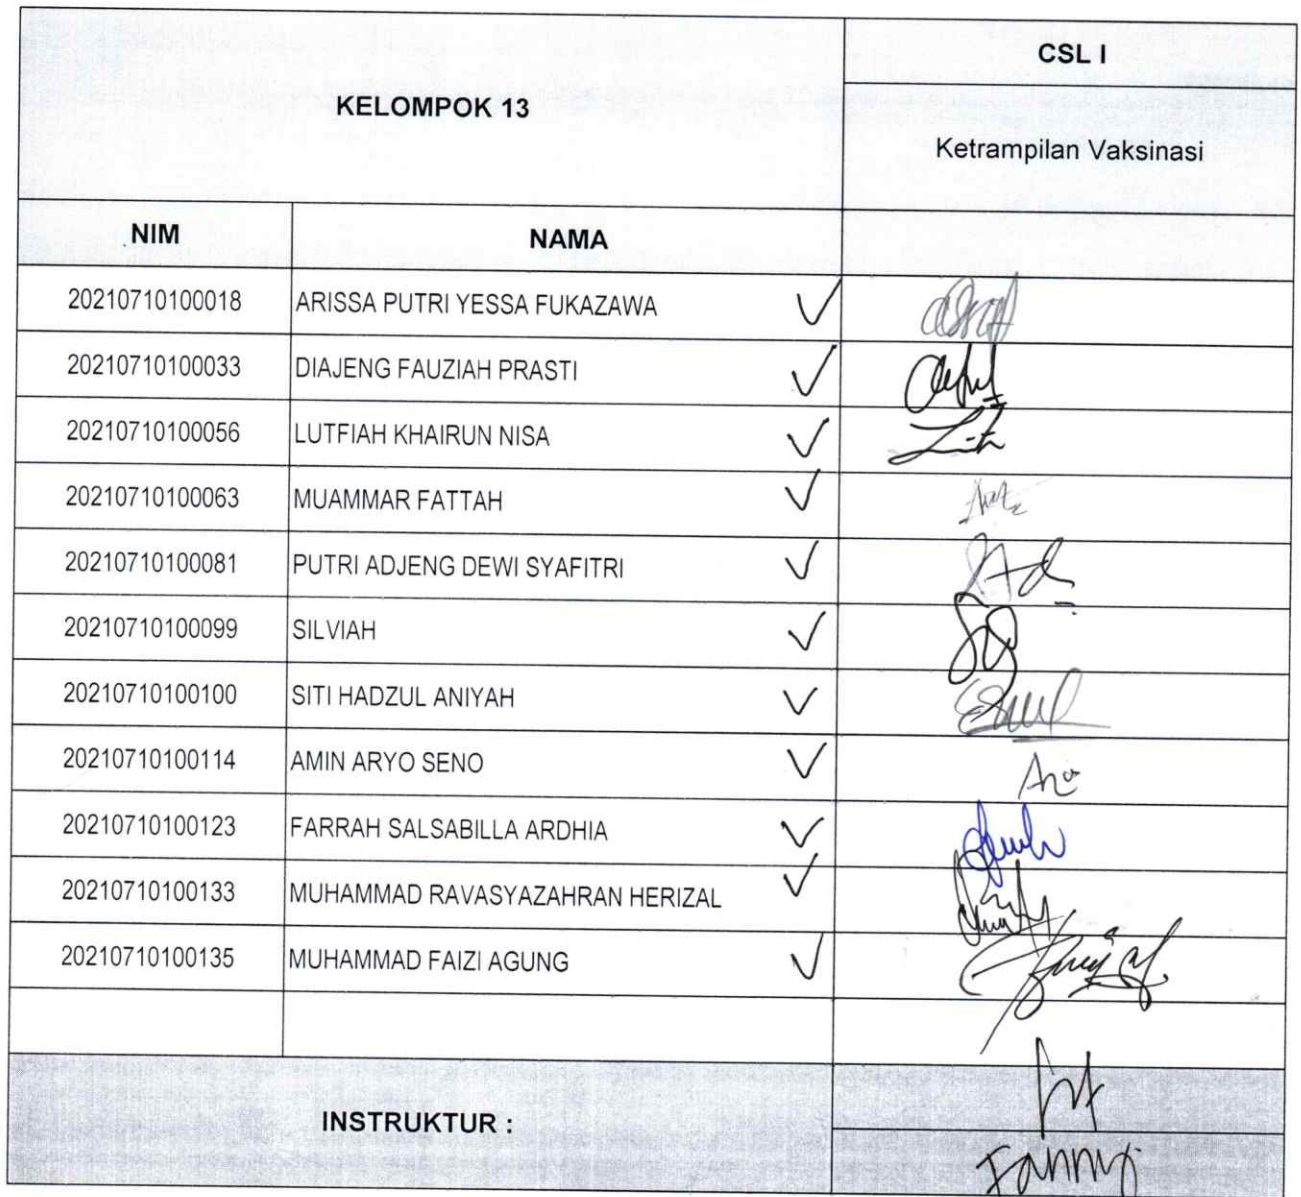 CSL I
KELOMPOK 13
Ketrampilan Vaksinasi
NIM NAMA
20210710100018 ARISSA PUTRI YESSA FUKAZAWA
20210710100033 DIAJENG FAUZIAH PRASTI
20210710100056 LUTFIAH KHAIRUN NISA
20210710100063 MUAMMAR FATTAH
20210710100081 PUTRI ADJENG DEWI SYAFITRI
20210710100099 SILVIAH
20210710100100 SITI HADZUL ANIYAH
20210710100114 AMIN ARYO SENO
20210710100123 FARRAH SALSABILLA ARDHIA
20210710100133 MUHAMMAD RAVASYAZAHRAN HERIZAL
20210710100135 MUHAMMAD FAIZI AGUNG
INSTRUKTUR :
Fanny